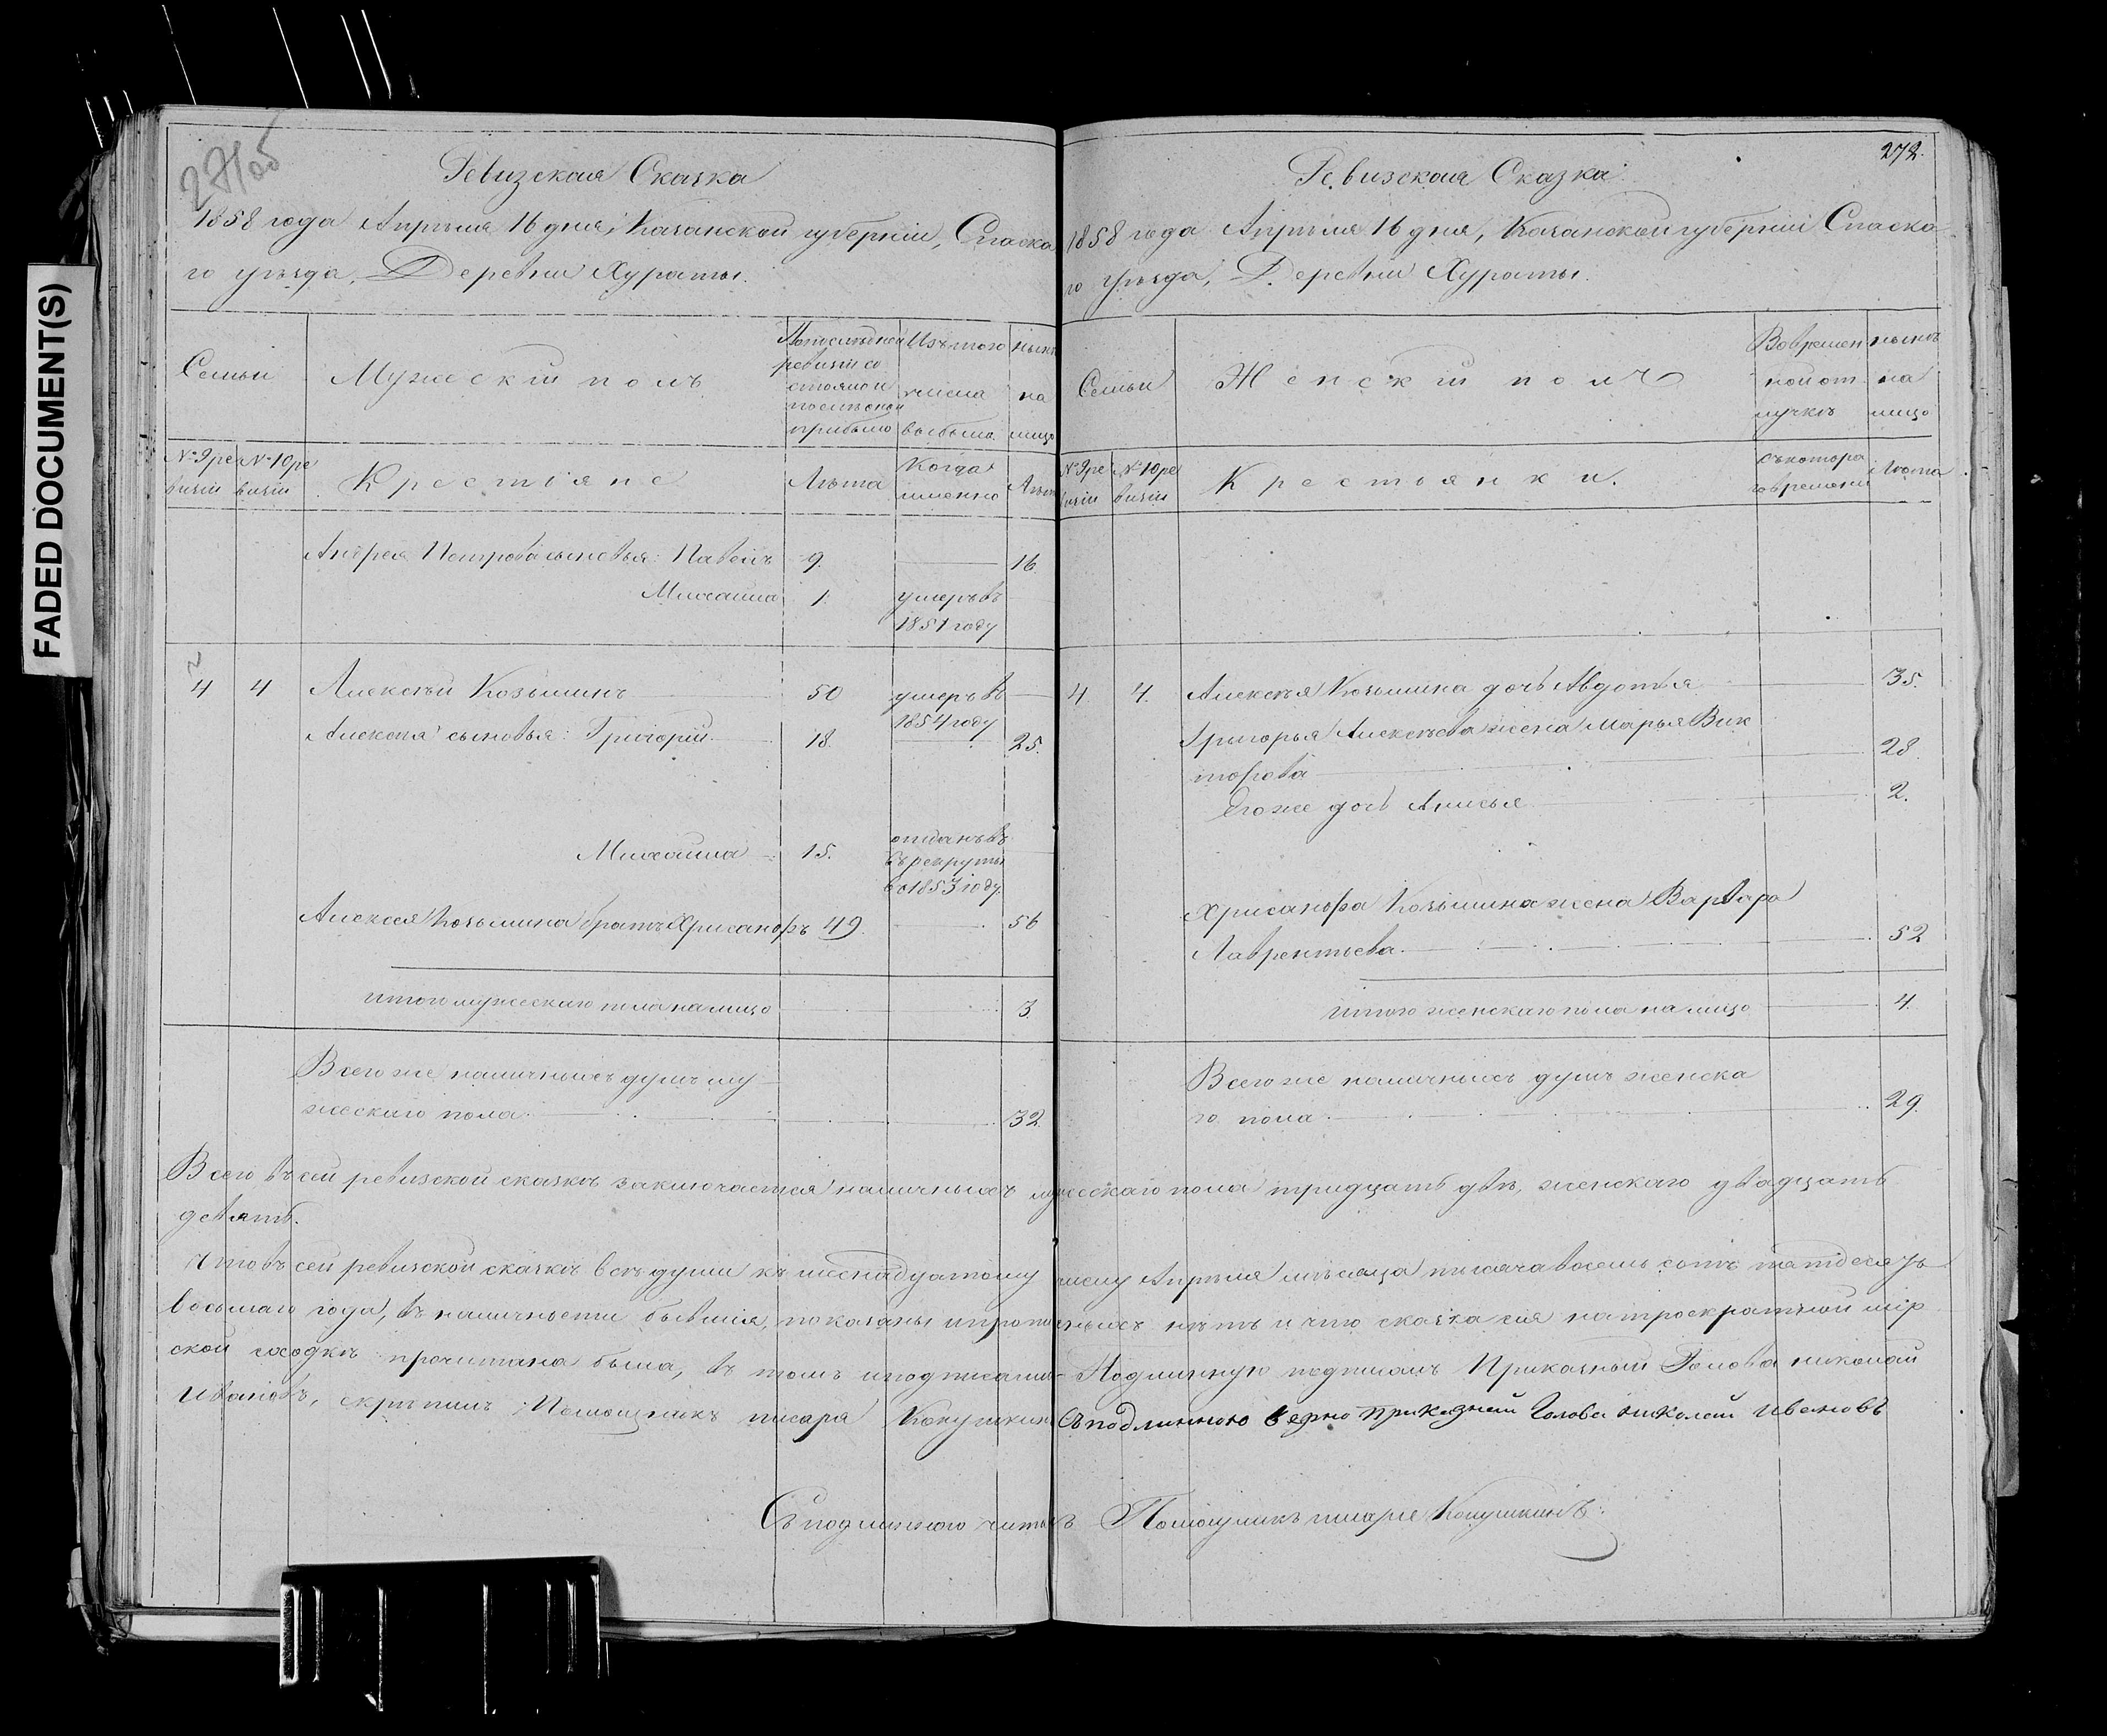 FADED DOCUMENT(S)
271об
Ревизская Сказка
1858 года Апрѣля 16 дня, Казанской губерніи, Спаска
го уѣзда, Деревни Хураты.
Семьи
Мужескій полъ
По последней
ревизіи со
стояло и
после оной
прибыло
Изъ того
числа
выбыло
ныне
на
лицо
№ 9 ре
визіи
№ 10 ре
визіи
Крестьяне
Лѣта
Когда
именно
Лѣта
Андрея Петрова сыновья: Павелъ 9. 16.
Михаила 1. умеръ въ
1851 году
4 4 Алексѣй Козьминъ 50 умеръ въ
1854 году
Алексѣя сыновья: Григорій 18. 25.
Михаила 15. отданъ въ
въ рекруты
въ 1853 году.
Алексея Козьмина братъ Хрисанфъ 49. 56
итого мужескаго пола на лицо 3.
Всего же наличныхъ душъ му
жескаго пола 32.
272.
Ревизская Сказка
1858 года Апрѣля 16 дня, Казанской губерніи Спаска
го уѣзда, Деревни Хураты.
Семьи
Женскій полъ
Во времен
ной от
лучкѣ
нынѣ
на
лицо
№ 9 ре
визіи
№ 10 ре
визіи
Крестьянки.
съ котора
го времени
Лѣта
4 4. Алексѣя Козьмина дочь Авдотья 35.
Григорья Алексѣева жена Марья Вик
торова 28.
Его же дочь Анисья 2.
Хрисанфа Козьмина жена Варвара
Лаврентьева 52
итого женскаго пола на лицо 4.
Всего же наличныхъ душъ женска
го пола 29.
Всего въ сей ревизской сказкѣ заключается наличныхъ мужескаго пола тридцать двѣ, женскаго двадцать
девять.
Что въ сей ревизской сказкѣ всѣ души къ шеснадцатому числу Апрѣля мѣсяца тысяча восемь сотъ пятдесятъ
восьмаго года, въ наличности бывшія, показаны и прописныхъ нѣтъ и что сказка сія на троекратной мір
ской сходкѣ прочитана была, въ томъ и подписали Подлинную подписалъ Приказный Голова николай
Ивановъ, скрѣпилъ Помощникъ писаря Кокушкинъ Съ подлинною верно приказной Голова николай Ивановъ
Съ подлинною читалъ Помощникъ писаря Кокушкинъ